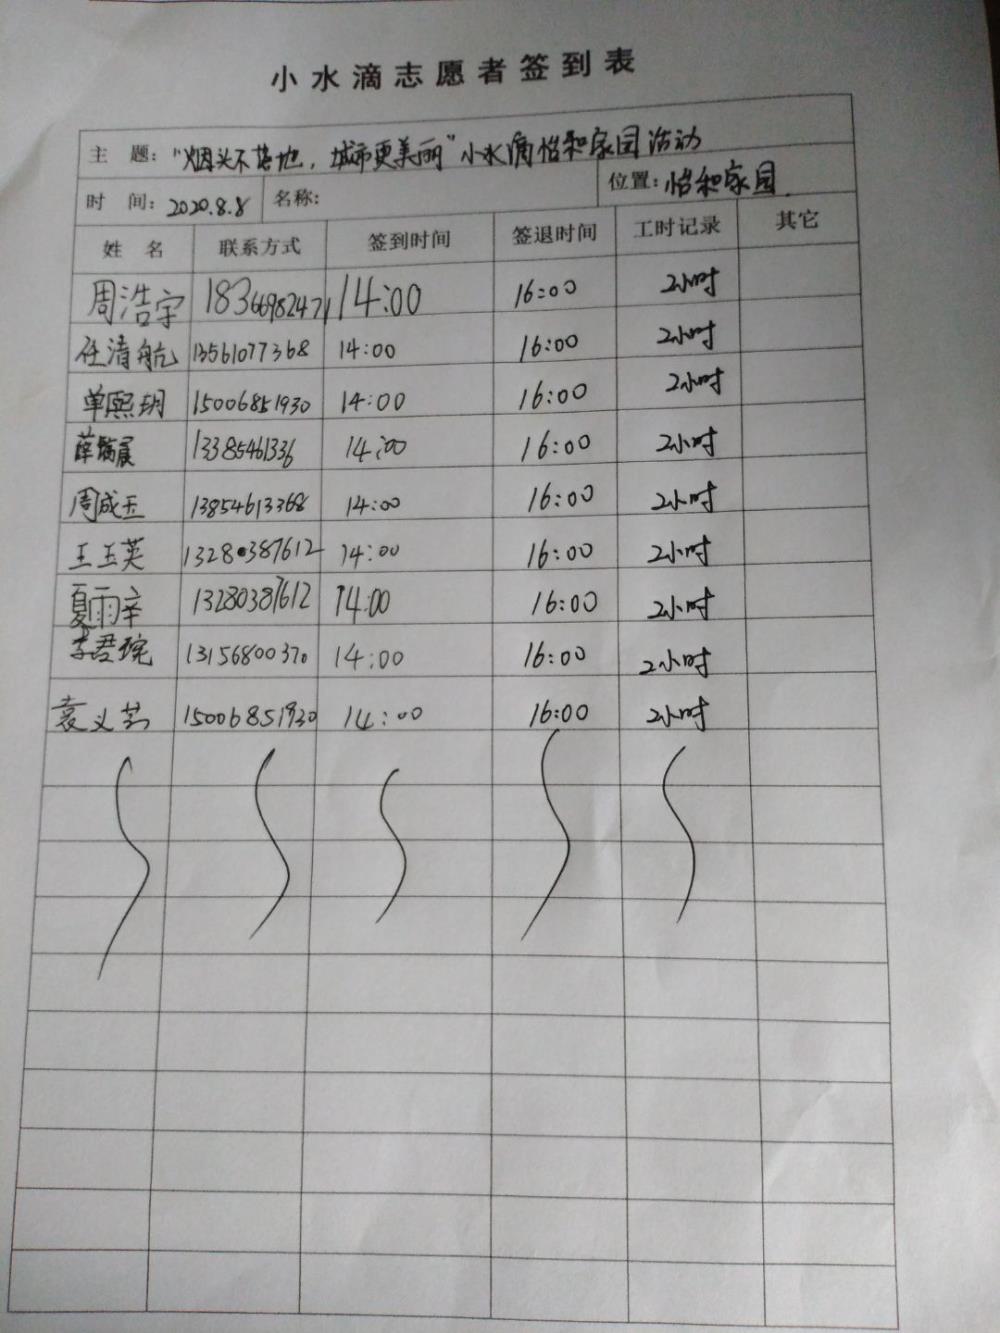 小水滴志愿者签到表
主 题：“烟头不落地，城市更美丽”小水滴怡和家园活动
时 间：2020.8.8 名称： 位置：怡和家园
姓 名 联系方式 签到时间 签退时间 工时记录 其它
周浩宇 18366982471 14:00 16:00 2小时
任清航 13561077368 14:00 16:00 2小时
单熙玥 15006851930 14:00 16:00 2小时
薛 展 13385461336 14:00 16:00 2小时
周成玉 13854613368 14:00 16:00 2小时
王玉英 13280387612 14:00 16:00 2小时
夏雨辛 13280387612 14:00 16:00 2小时
李君琬 13156800370 14:00 16:00 2小时
袁义艺 15006851930 14:00 16:00 2小时